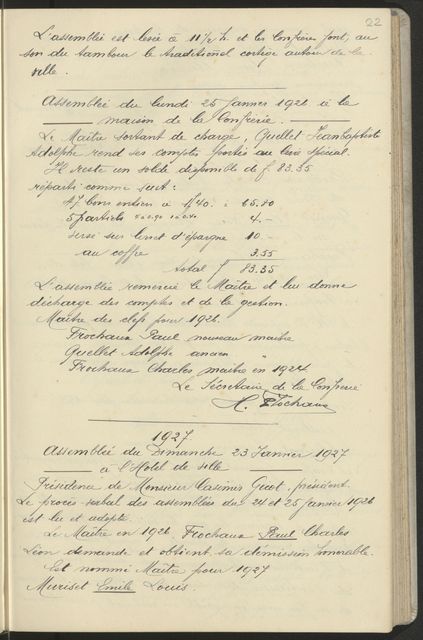 22
L'assemblée est levée à 11½ h et les Confrères font, au
son du tambour le traditionnel cortège autour de la
ville.
Assemblée du lundi 25 Janvier 1926 à la
maison de la Confrérie.
Le Maître sortant de charge, Quellet Jeanbaptiste
Adolphe rend ses comptes portés au livre spécial.
Il reste un solde disponible de f. 83.35
réparti comme suit:
47 bons entiers à 1,40. = 65.80
5 partiels 4.-
versé sur livret d'épargne 10 -
au coffre 3.55
total f 83.35
L'assemblée remercie le Maître et lui donne
décharge des comptes et de la gestion.
Maître des clefs pour 1926.
Frochaux Paul nouveau maître
Quellet Adolphe ancien "
Frochaux Charles maître en 1924
Le Secrétaire de la Confrérie
H. Frochaux
1927.
Assemblée du Dimanche 23 Janvier 1927
à l'Hotel de ville
Présidence de Monsieur Casimir Gicot, président.
Le procès-verbal des assemblées du 24 et 25 janvier 1926
est lu et adopté.
Le Maître en 1926. Frochaux Paul Charles
Léon demande et obtient sa démission honorable.
Est nommé Maître pour 1927
Muriset Emile Louis.